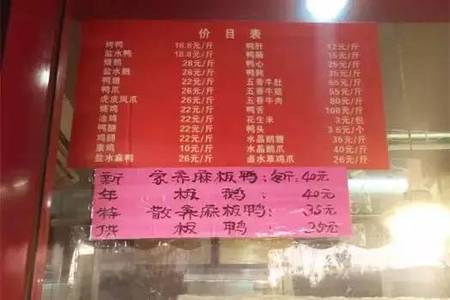 价目表
烤鸭 18.8元/斤 鸭肝 12元/斤
盐水鸭 18.8元/斤 鸭肠 15元/斤
烧鹅 28元/斤 鸭心 25元/斤
盐水鹅 26元/斤 鸭肫 35元/斤
鸭翅 22元/斤 五香牛肚 65元/斤
鸭爪 22元/斤 五香牛筋 55元/斤
虎皮凤爪 26元/斤 五香牛肉 80元/斤
烧鸡 22元/斤 鸭舌 108元/斤
油鸡 22元/斤 花生米 3元/包
鸭腿 22元/斤 鸭头 3.5元/个
鸡腿 22元/斤 水晶鹅翅 35元/斤
唐鸡 10元/斤 水晶鹅爪 40元/斤
盐水麻鸭 26元/斤 卤水草鸡爪 26元/斤
新 家养麻板鸭:每斤:40元
年 板鹅:40元
特 散养麻板鸭:35元
供 板鸭:25元